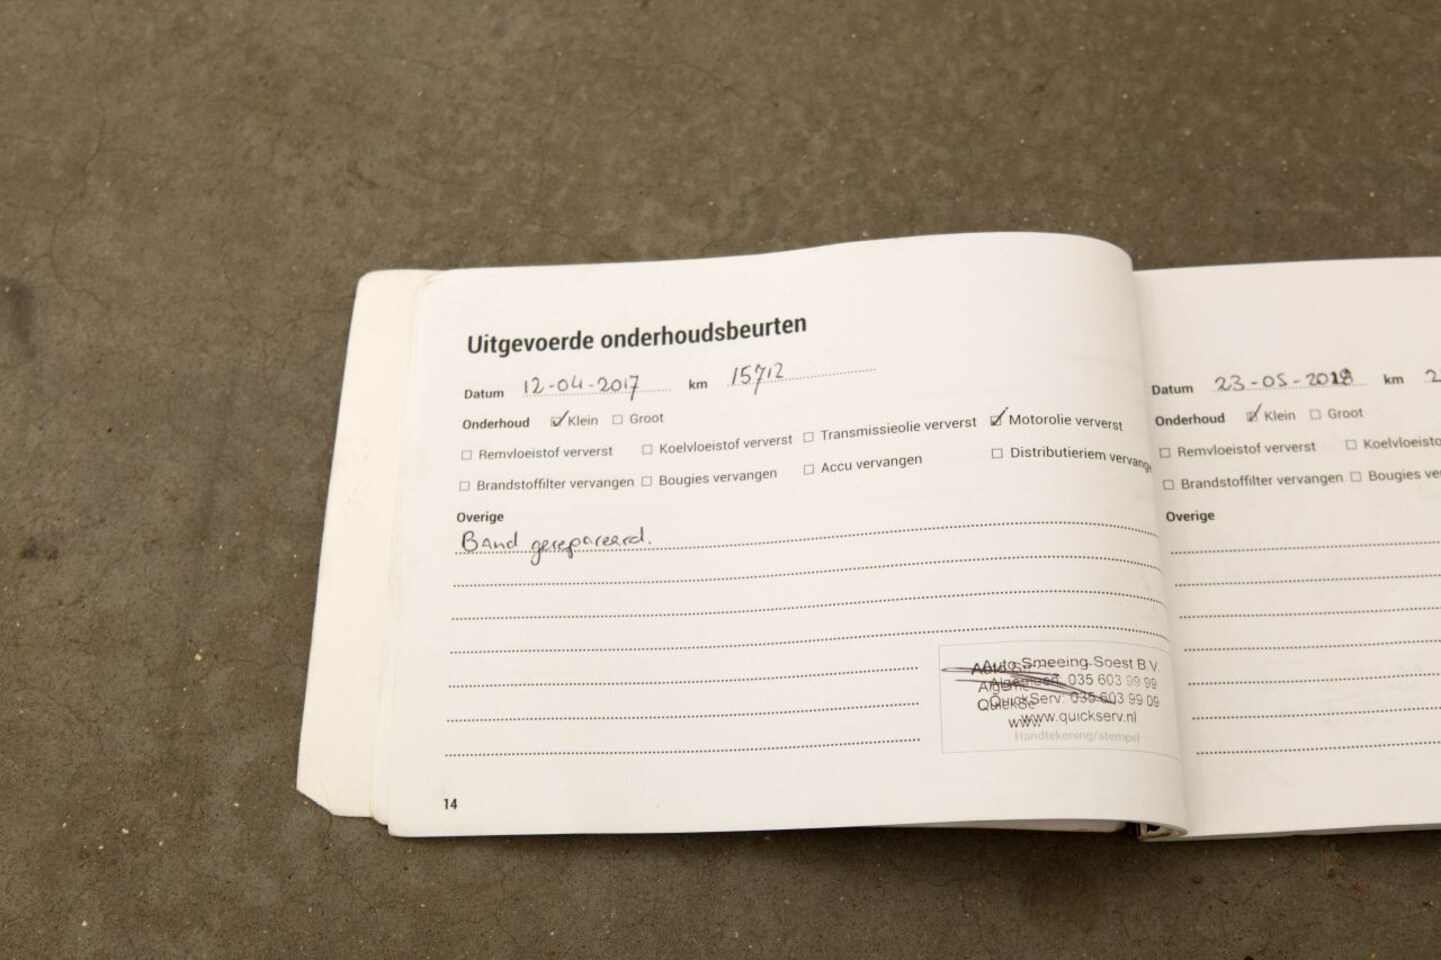 Uitgevoerde onderhoudsbeurten
Datum 12-04-2017 km 15712
Onderhoud Klein Groot
Remvloeistof ververst Koelvloeistof ververst Transmissieolie ververst Motorolie ververst
Brandstoffilter vervangen Bougies vervangen Accu vervangen Distributieriem vervange
Overige
Band gerepareerd.
Auto Smeeing Soest B.V.
Algemeen: 035 603 99 99
QuickServ: 035 603 99 09
www.quickserv.nl
Handtekening/stempel
14
Datum 23-05-2018 km 2
Onderhoud Klein Groot
Remvloeistof ververst Koelvloeisto
Brandstoffilter vervangen Bougies ve
Overige